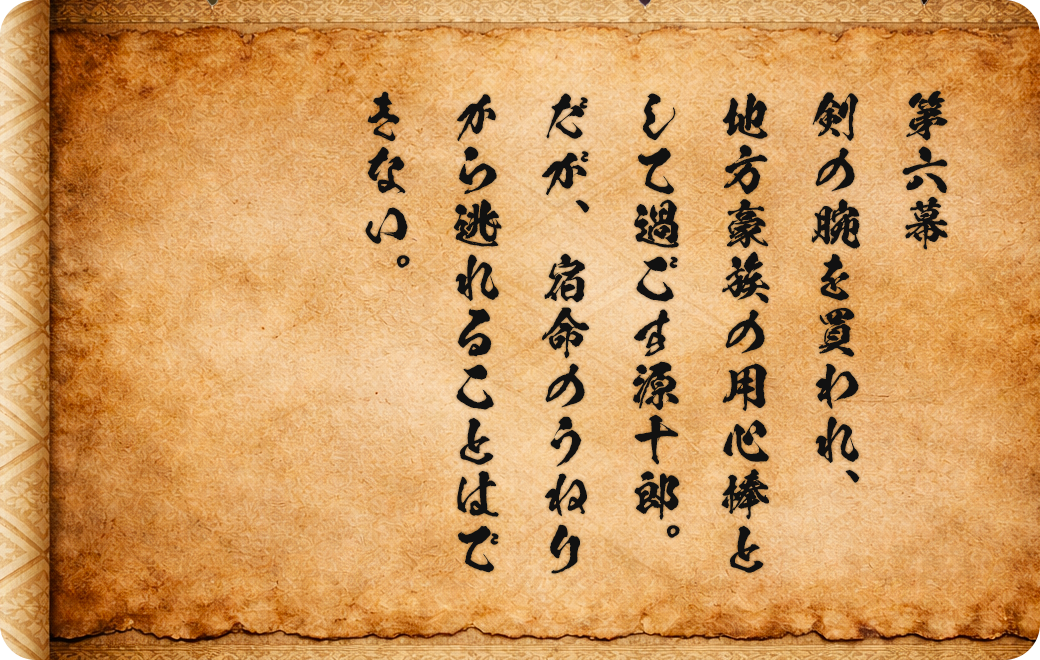 第六幕
剣の腕を買われ、
地方豪族の用心棒と
して過ごす源十郎。
だが、宿命のうねり
から逃れることはで
きない。